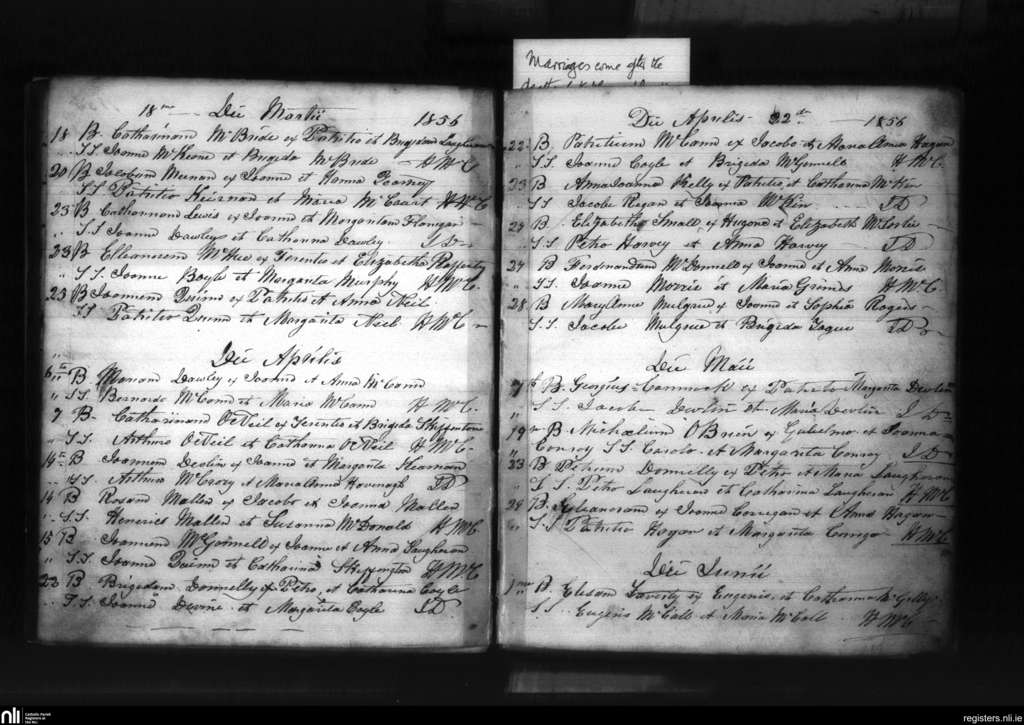 Marriages come after the
18 Die Martii 1856
18 B. Catharinam McBride ex Patritio et Brigida Laugheran
S.S. Joanne McKeone et Brigida McBride H McC
20 B Jacobum Meenan ex Joanne et Hanna
S.S. Patritio Kiernan et Maria McCourt H McC
23 B Catharinam Lewis ex Joanne et Margaritam Flongan
S.S. Joanne Dawley et Catharina Dawley J D
23 B Elleanorem McHue ex Terentio et Elizabetha Rafferty
S.S. Joanne Boyle et Margarita Murphy H McC
25 B Joannem Quinn ex Patritio et Anna Neil
S.S. Patritio Quinn et Margarita Neil H McC
Die Aprilis
6 B Mariam Dawley ex Joanne et Anna McCann
S.S. Bernardo McCann et Maria McCann H McC
7 B. Catharinam O'Neil ex Terentio et Brigida Skeffington
S.S. Arthuro O'Neil et Catharina O'Neil H McC
14 B Joannem Devlin ex Joanne et Margarita
S.S. Arthuro McCrory et Maria Anna Kavenagh J D
14 B Rosam Mallen ex Jacobo et Joanna Mallen
S.S. Henerico Mallen et Susanna McDonald H McC
15 B Joannem McGonnell ex Joanne et Anna Laugheran
S.S. Joanne Quinn et Catharina Skeffington H McC
22 B Brigidam Donnelly ex Petro et Catharina Coyle
S.S. Joanne Devine et Margarita Coyle J D
Die Aprilis 22 1856
22 B. Patritium McCann ex Jacobo et Maria Anna Hagan
S.S. Joanne Coyle et Brigida McGonnell H McC
23 B Anna Joanna Kelly ex Patritio et Catharina
S.S. Jacobo Regan et Joanna J D
24 B. Elizabetha Small ex Hugone et Elizabeth McSorley
S.S. Petro Harvey et Anna Harvey J D
27 B Ferdinandum McDonnell ex Joanne et Anna Morris
S.S. Joanne Morris et Maria Grimes H McC
28 B Mary Anne Mulgrew ex Joanne et Sophia Rogers
S.S. Jacobo Mulgrew et Brigida J D
Die Maii
7 B. Georgius ex Patritio Margarita Devlin
S.S. Jacobo Devlin et Maria Devlin J D
19 B Michaelum O'Brien ex Gulielmo et Joanna
Conroy S.S. Carolo et Margarita Conroy J D
23 B Petrum Donnelly ex Petro et Maria Laugheran
S.S. Petro Laugheran et Catharina Laugheran H McC
29 B. ex Joanne Corrigan et Anna
S.S. Patritio Hogan et Margarita H McC
Die Junii
1 B. Laverty ex Eugenio et Catharina
S.S. Eugenio McCall et Maria McCall H McC
nli
Catholic Parish
Registers at
the NLI
registers.nli.ie